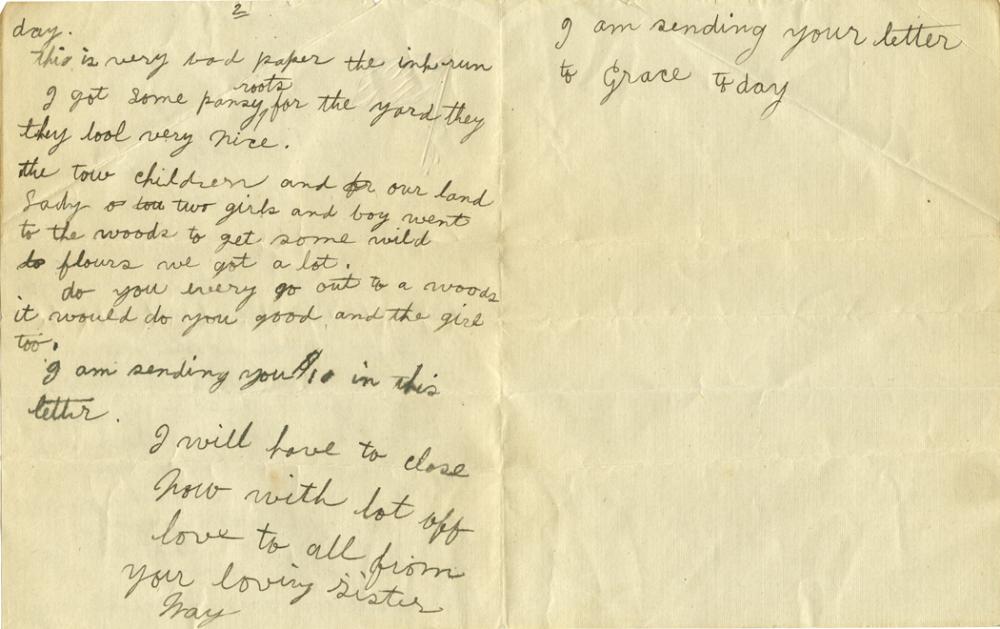 2
day.
this is very bad paper the ink run
I got some pansy roots for the yard they
they lool very nice.
the tow children and our land
Lady two girls and boy went
to the woods to get some wild
flours we got a lot.
do you every go out to a woods
it would do you good and the girl
too.
I am sending you $10 in this
letter.
I will have to close
now with lot off
love to all from
your loving sister
May
I am sending your letter
to Grace to day